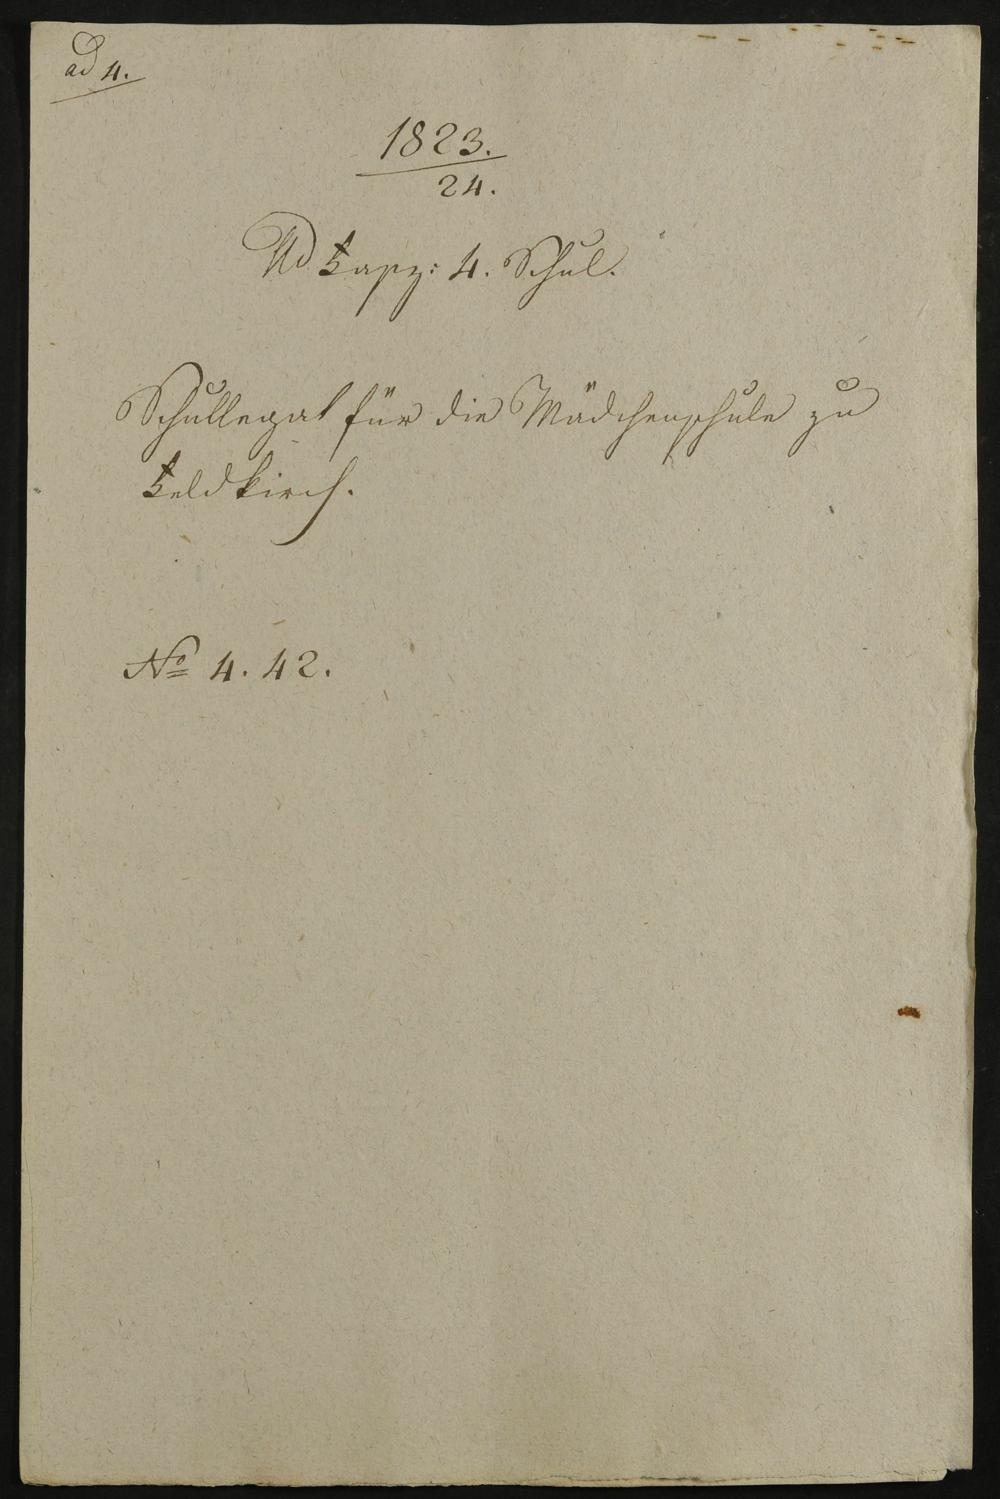 ad 4.
1823.
24.
Ad Fasz: 4. Schul.
Schullegat für die Mädchenschule zu
Feldkirch.
No 4. 42.